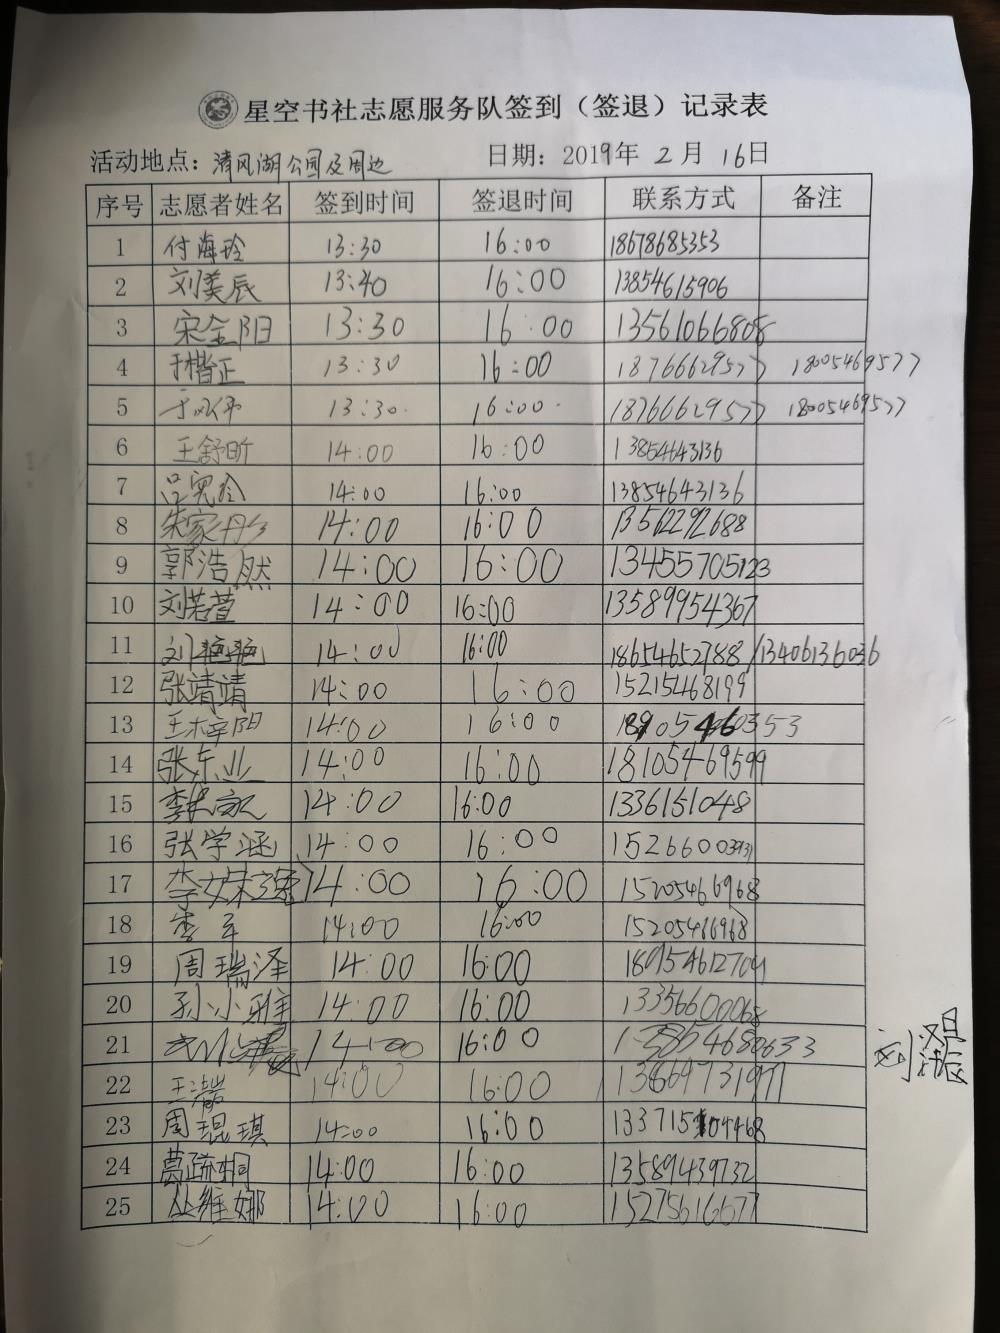 星空书社志愿服务队签到（签退）记录表
活动地点：清风湖公园及周边 日期：2019年 2 月 16日
序号 志愿者姓名 签到时间 签退时间 联系方式 备注
1 付海玲 13:30 16:00 18678685353
2 刘美辰 13:40 16:00 13854615906
3 宋金阳 13:30 16:00 13561066808
4 于楷正 13:30 16:00 18766629577 18005469577
5 13:30 16:00 18766629577 18005469577
6 王舒昕 14:00 16:00 13854643136
7 吕宪玲 14:00 16:00 13854643136
8 朱家彤 14:00 16:00 13562292688
9 郭浩然 14:00 16:00 13455705123
10 刘若萱 14:00 16:00 13589954367
11 刘艳艳 14:00 16:00 18654652788/13406136036
12 张靖靖 14:00 16:00 15215468199
13 王梓阳 14:00 16:00
14 张东业 14:00 16:00 18105469599
15 14:00 16:00 1336151048
16 张学涵 14:00 16:00 15266003931
17 14:00 16:00 15205466968
18 李军 14:00 16:00
19 周瑞泽 14:00 16:00 18954612704
20 孙小雅 14:00 16:00 13356600068
21 14:00 16:00 13854680633 刘
22 王瀞 14:00 16:00
23 周琨琪 14:00 16:00
24 葛疏桐 14:00 16:00 13589439732
25 丛维娜 14:00 16:00 15275616677